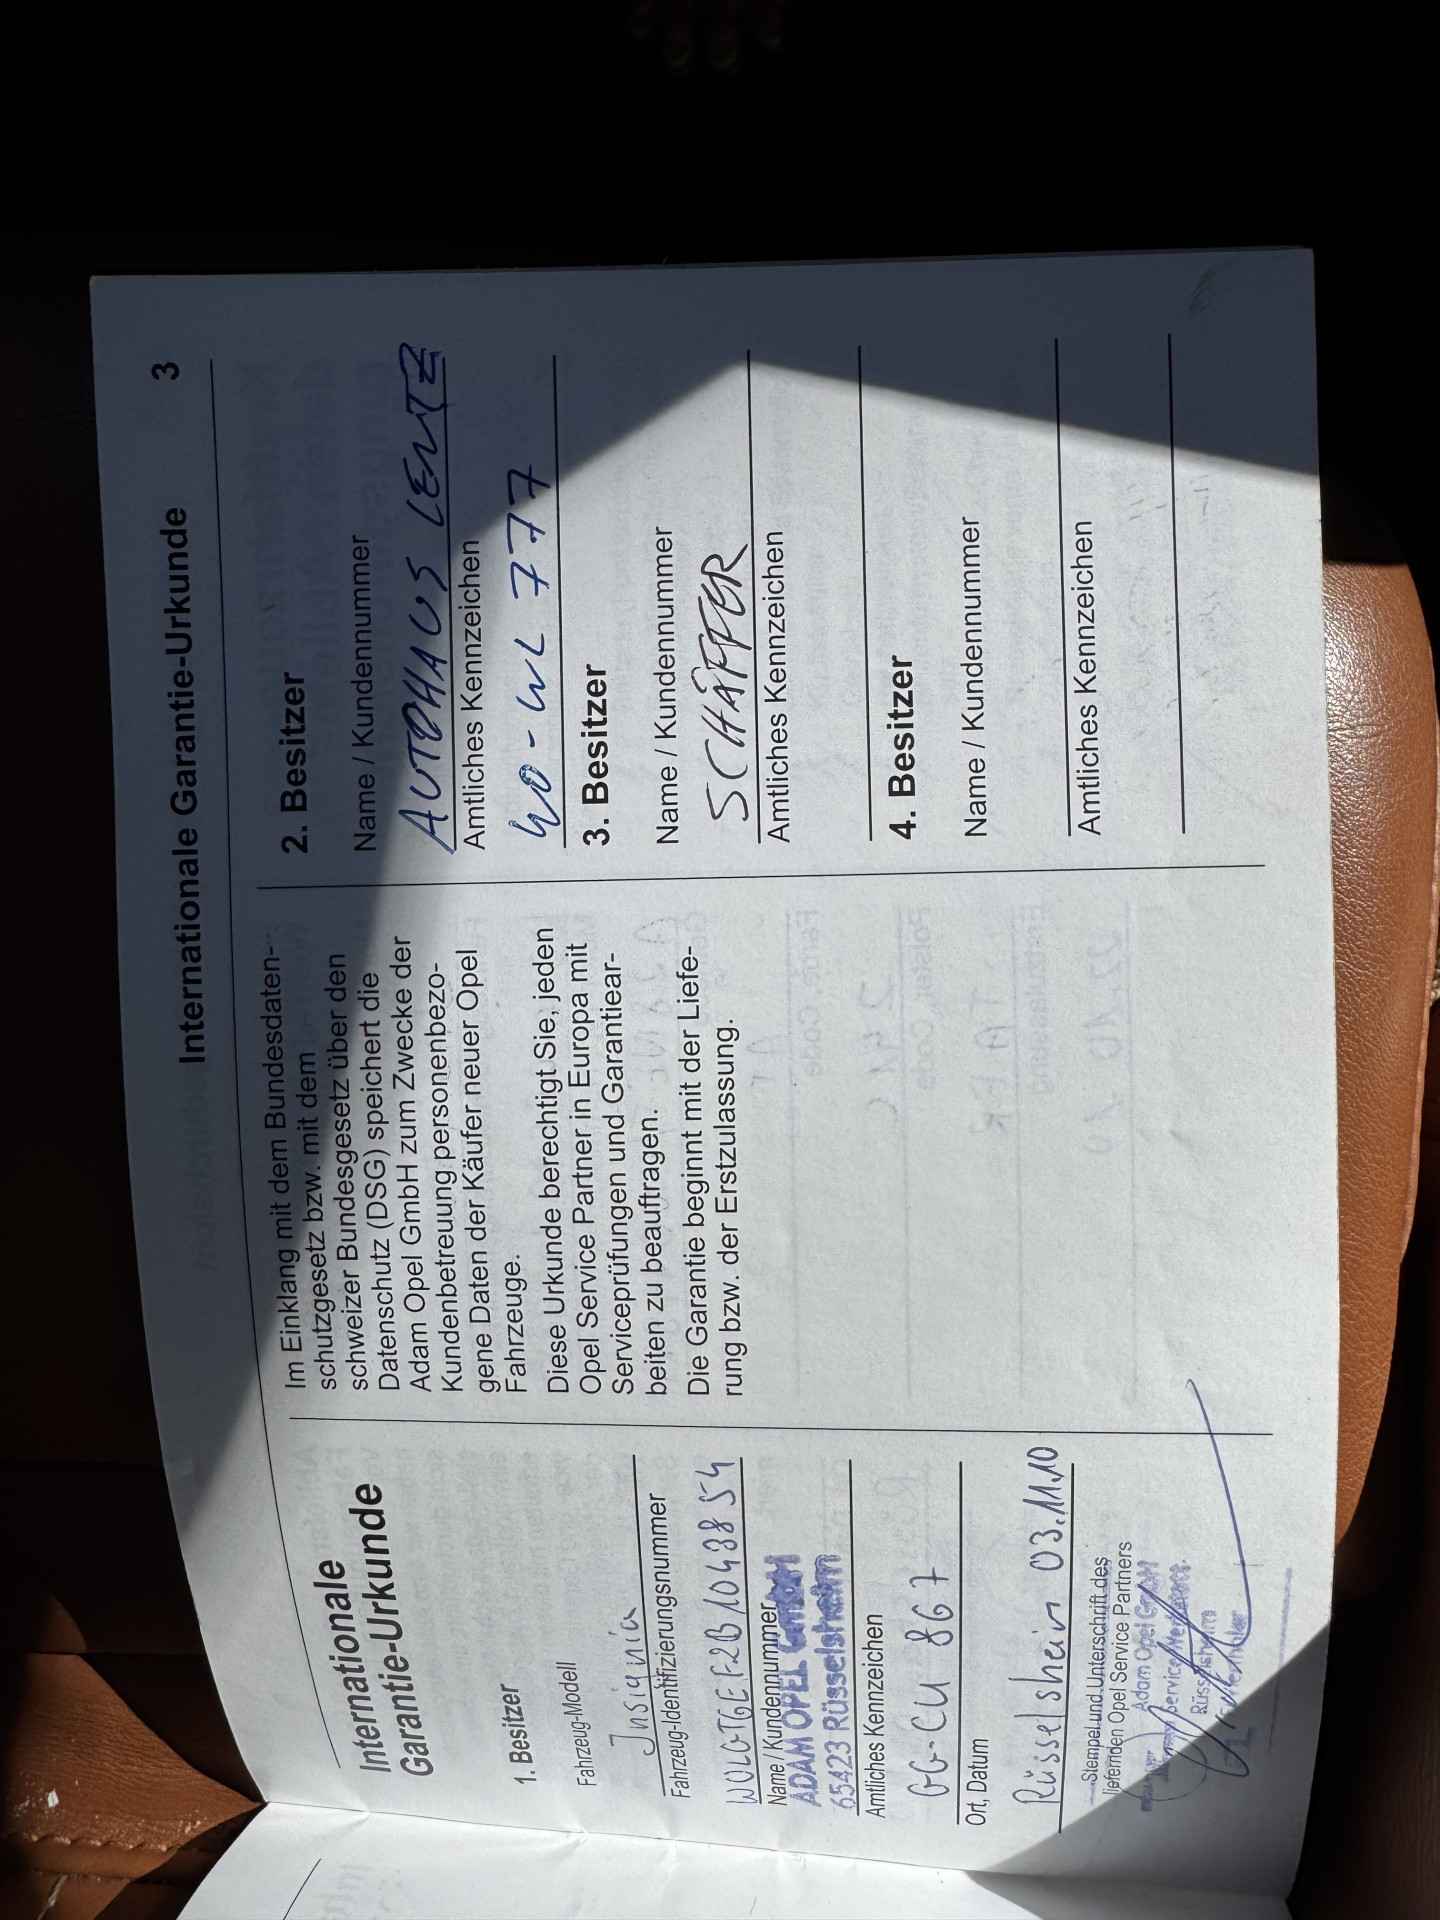 Internationale Garantie-Urkunde 3
Internationale
Garantie-Urkunde
1. Besitzer
Fahrzeug-Modell
Insignia
Fahrzeug-Identifizierungsnummer
W0LGT6EF2B1043854
Name / Kundennummer
ADAM OPEL GmbH
65423 Rüsselsheim
Amtliches Kennzeichen
GG-CU 867
Ort, Datum
Rüsselsheim 03.11.10
Stempel und Unterschrift des
liefernden Opel Service Partners
Adam Opel GmbH
Rüsselsheim
Im Einklang mit dem Bundesdaten-
schutzgesetz bzw. mit dem
schweizer Bundesgesetz über den
Datenschutz (DSG) speichert die
Adam Opel GmbH zum Zwecke der
Kundenbetreuung personenbezo-
gene Daten der Käufer neuer Opel
Fahrzeuge.
Diese Urkunde berechtigt Sie, jeden
Opel Service Partner in Europa mit
Serviceprüfungen und Garantiear-
beiten zu beauftragen.
Die Garantie beginnt mit der Liefe-
rung bzw. der Erstzulassung.
2. Besitzer
Name / Kundennummer
AUTOHAUS LENTZ
Amtliches Kennzeichen
WO-WL 777
3. Besitzer
Name / Kundennummer
SCHÄFFER
Amtliches Kennzeichen
4. Besitzer
Name / Kundennummer
Amtliches Kennzeichen